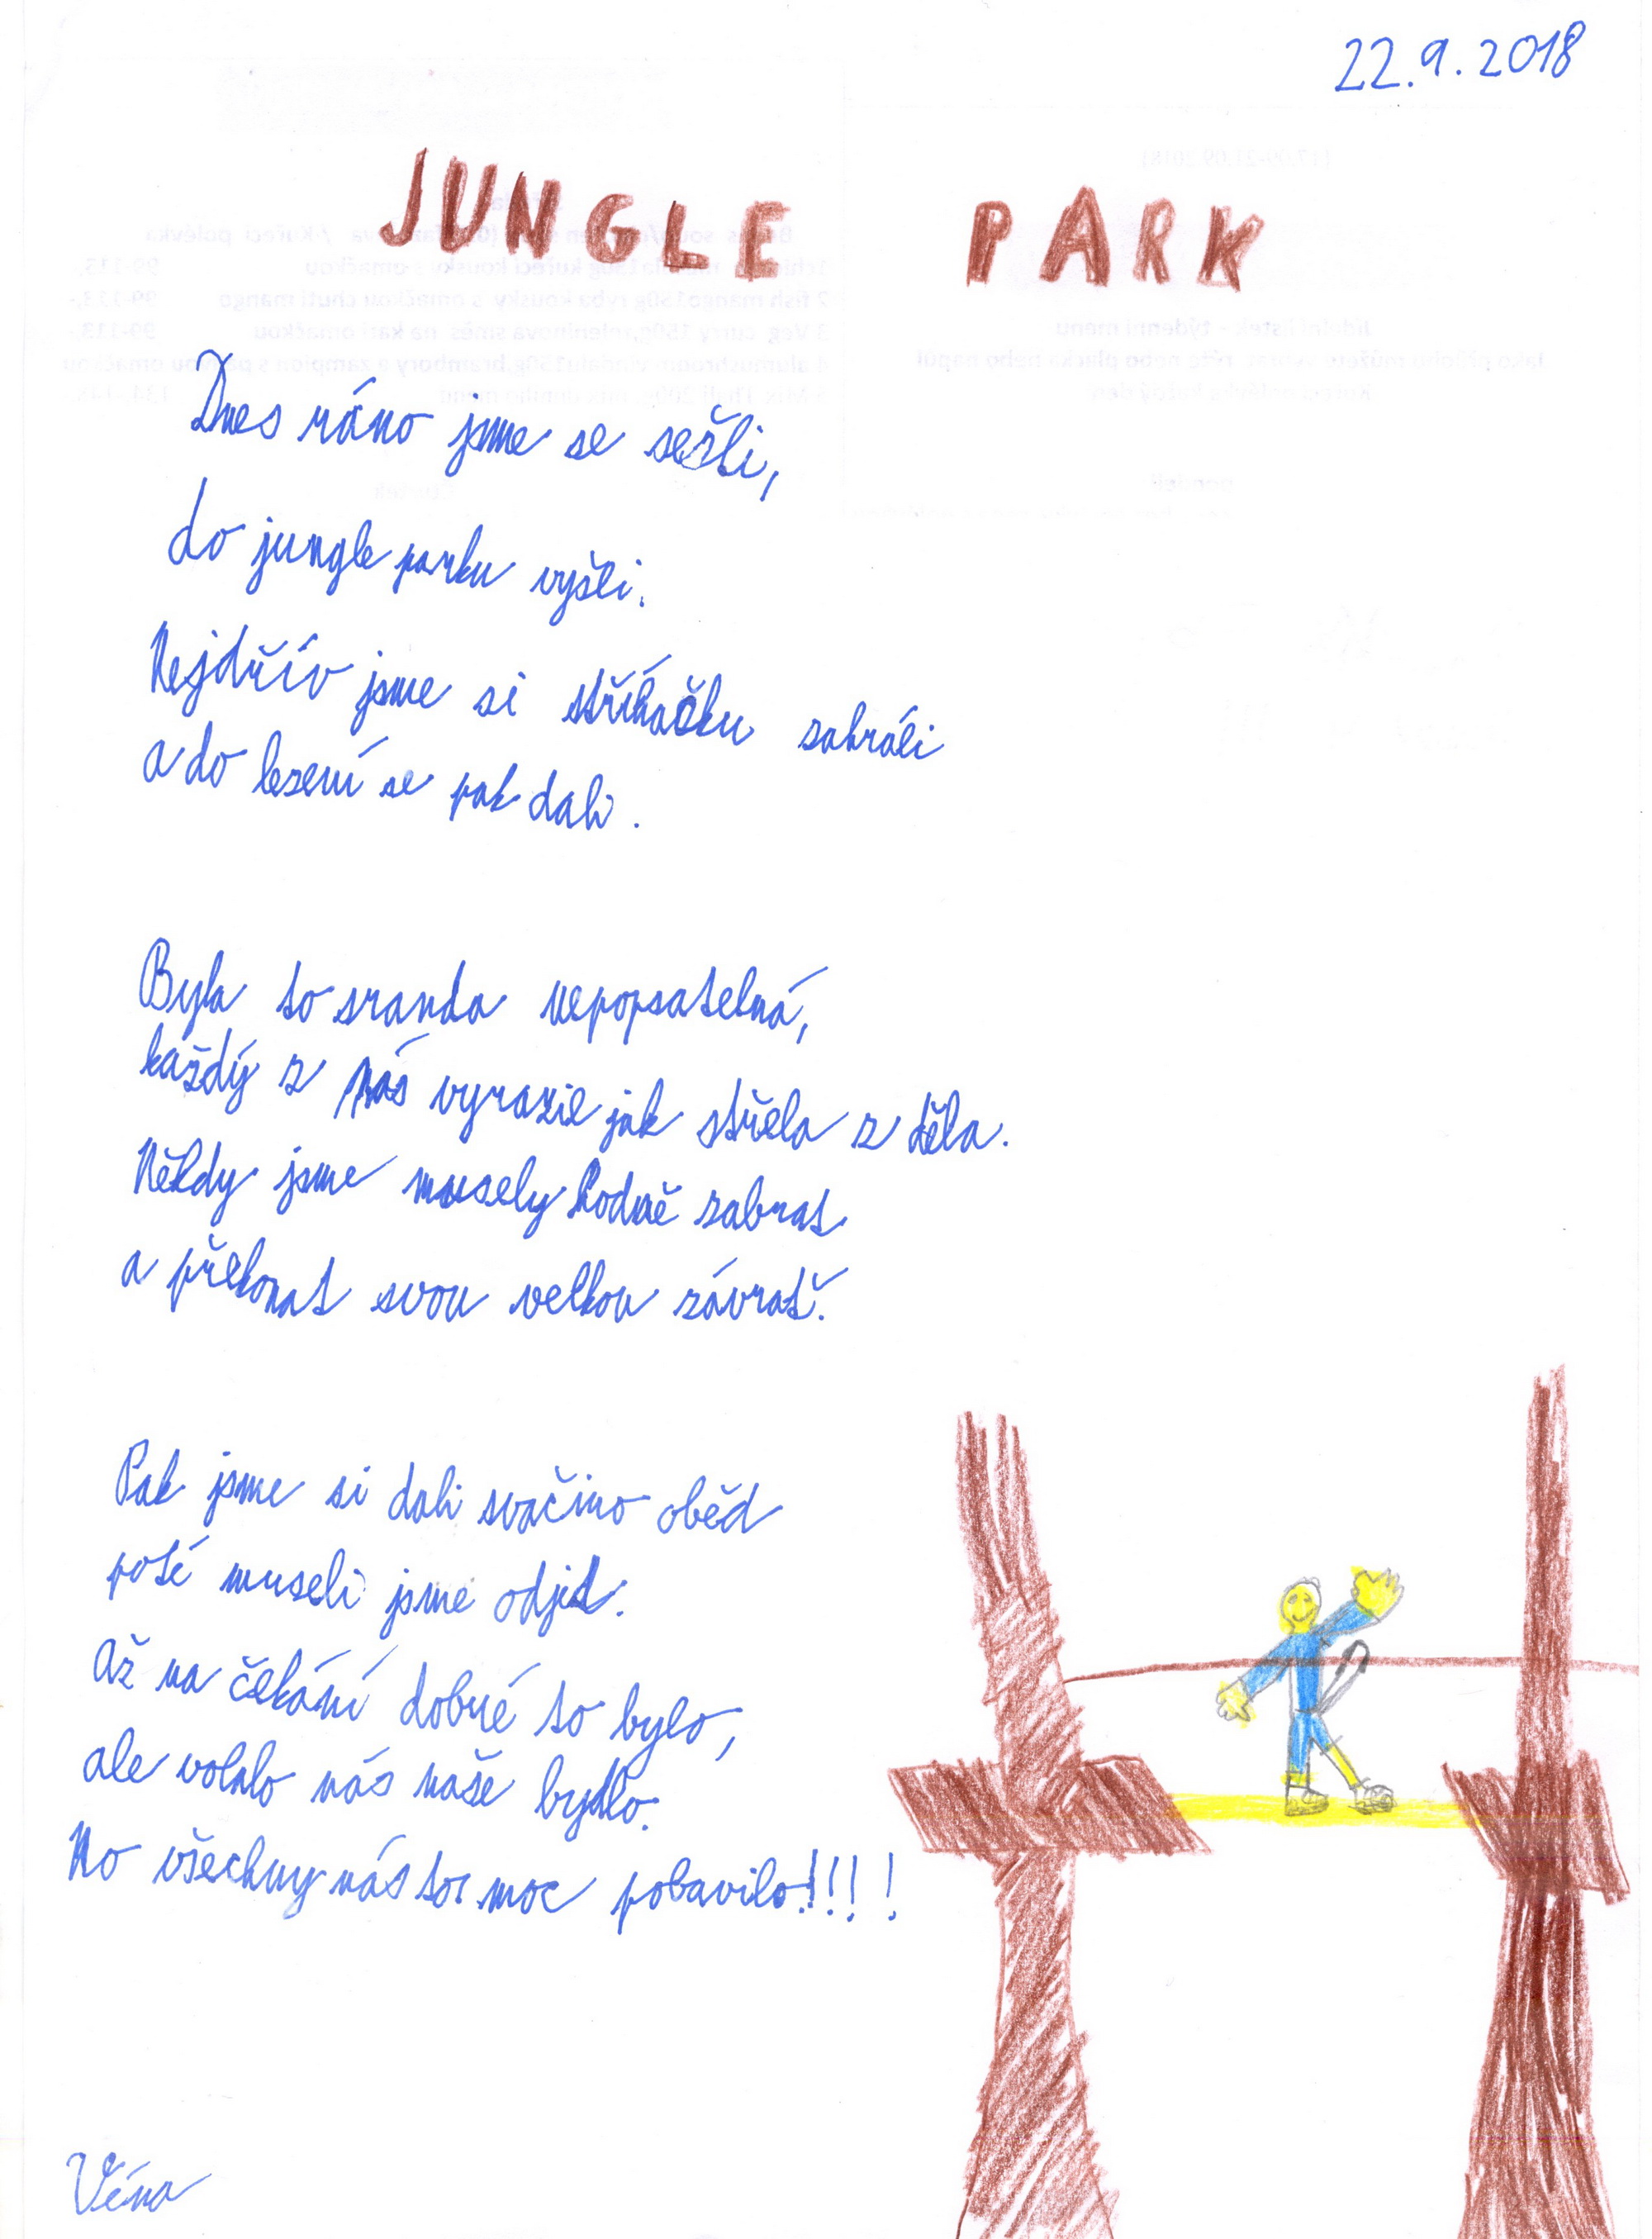 22.9.2018
JUNGLE PARK
Dnes ráno jsme se sešli,
do jungle parku vyšli.
Nejdřív jsme si stříkačku zahráli
a do lezení se pak dali.
Byla to sranda nepopsatelná,
každý z nás vyrazil jak střela z děla.
Někdy jsme musely hodně zabrat
a překonat svou velkou závrať.
Pak jsme si dali svačino oběd
poté museli jsme odjet.
Až na čekání dobré to bylo,
ale volalo nás naše bydlo.
No všechny nás to moc pobavilo!!!!
Véna